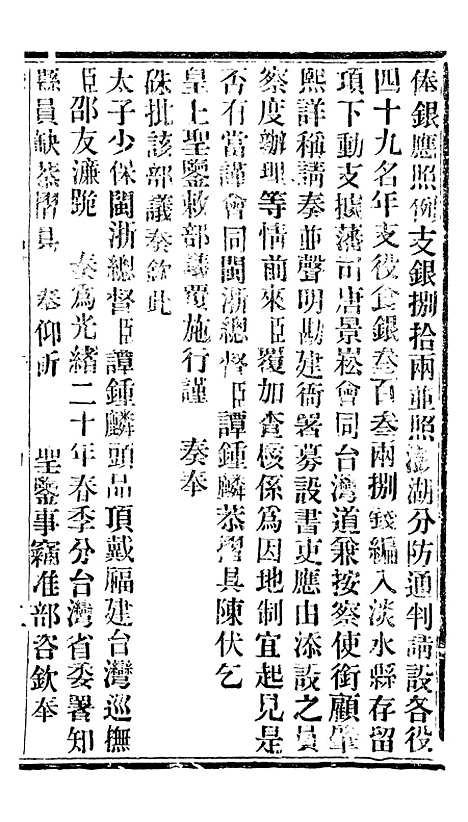 俸銀應照例支銀捌拾兩並照澎湖分防通判請設各役
四十九名年支役食銀叁百叁兩捌錢編入淡水縣存留
項下動支據藩司唐景崧會同台灣道兼按察使銜顧肇
熙詳稱請奏並聲明勘建衙署募設書吏應由添設之員
察度辦理等情前來臣覆加查核係為因地制宜起見是
否有當謹會同閩浙總督臣譚鍾麟恭摺具陳伏乞
皇上聖鑒敕部議覆施行謹 奏奉
硃批該部議奏欽此
太子少保閩浙總督臣譚鍾麟頭品頂戴福建台灣巡撫
臣邵友濂跪 奏為光緒二十年春季分台灣省委署知
縣員缺恭摺具 奏仰祈 聖鑒事竊准部咨欽奉